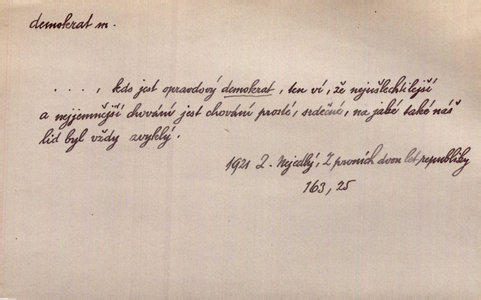 demokrat m.
. . . . , kdo jest opravdový demokrat, ten ví, že nejušlechtilejší
a nejjemnější chování jest chování prosté, srdečné, na jaké také náš
lid byl vždy zvyklý.
1921 Z. Nejedlý, Z prvních dvou let republiky
163, 25